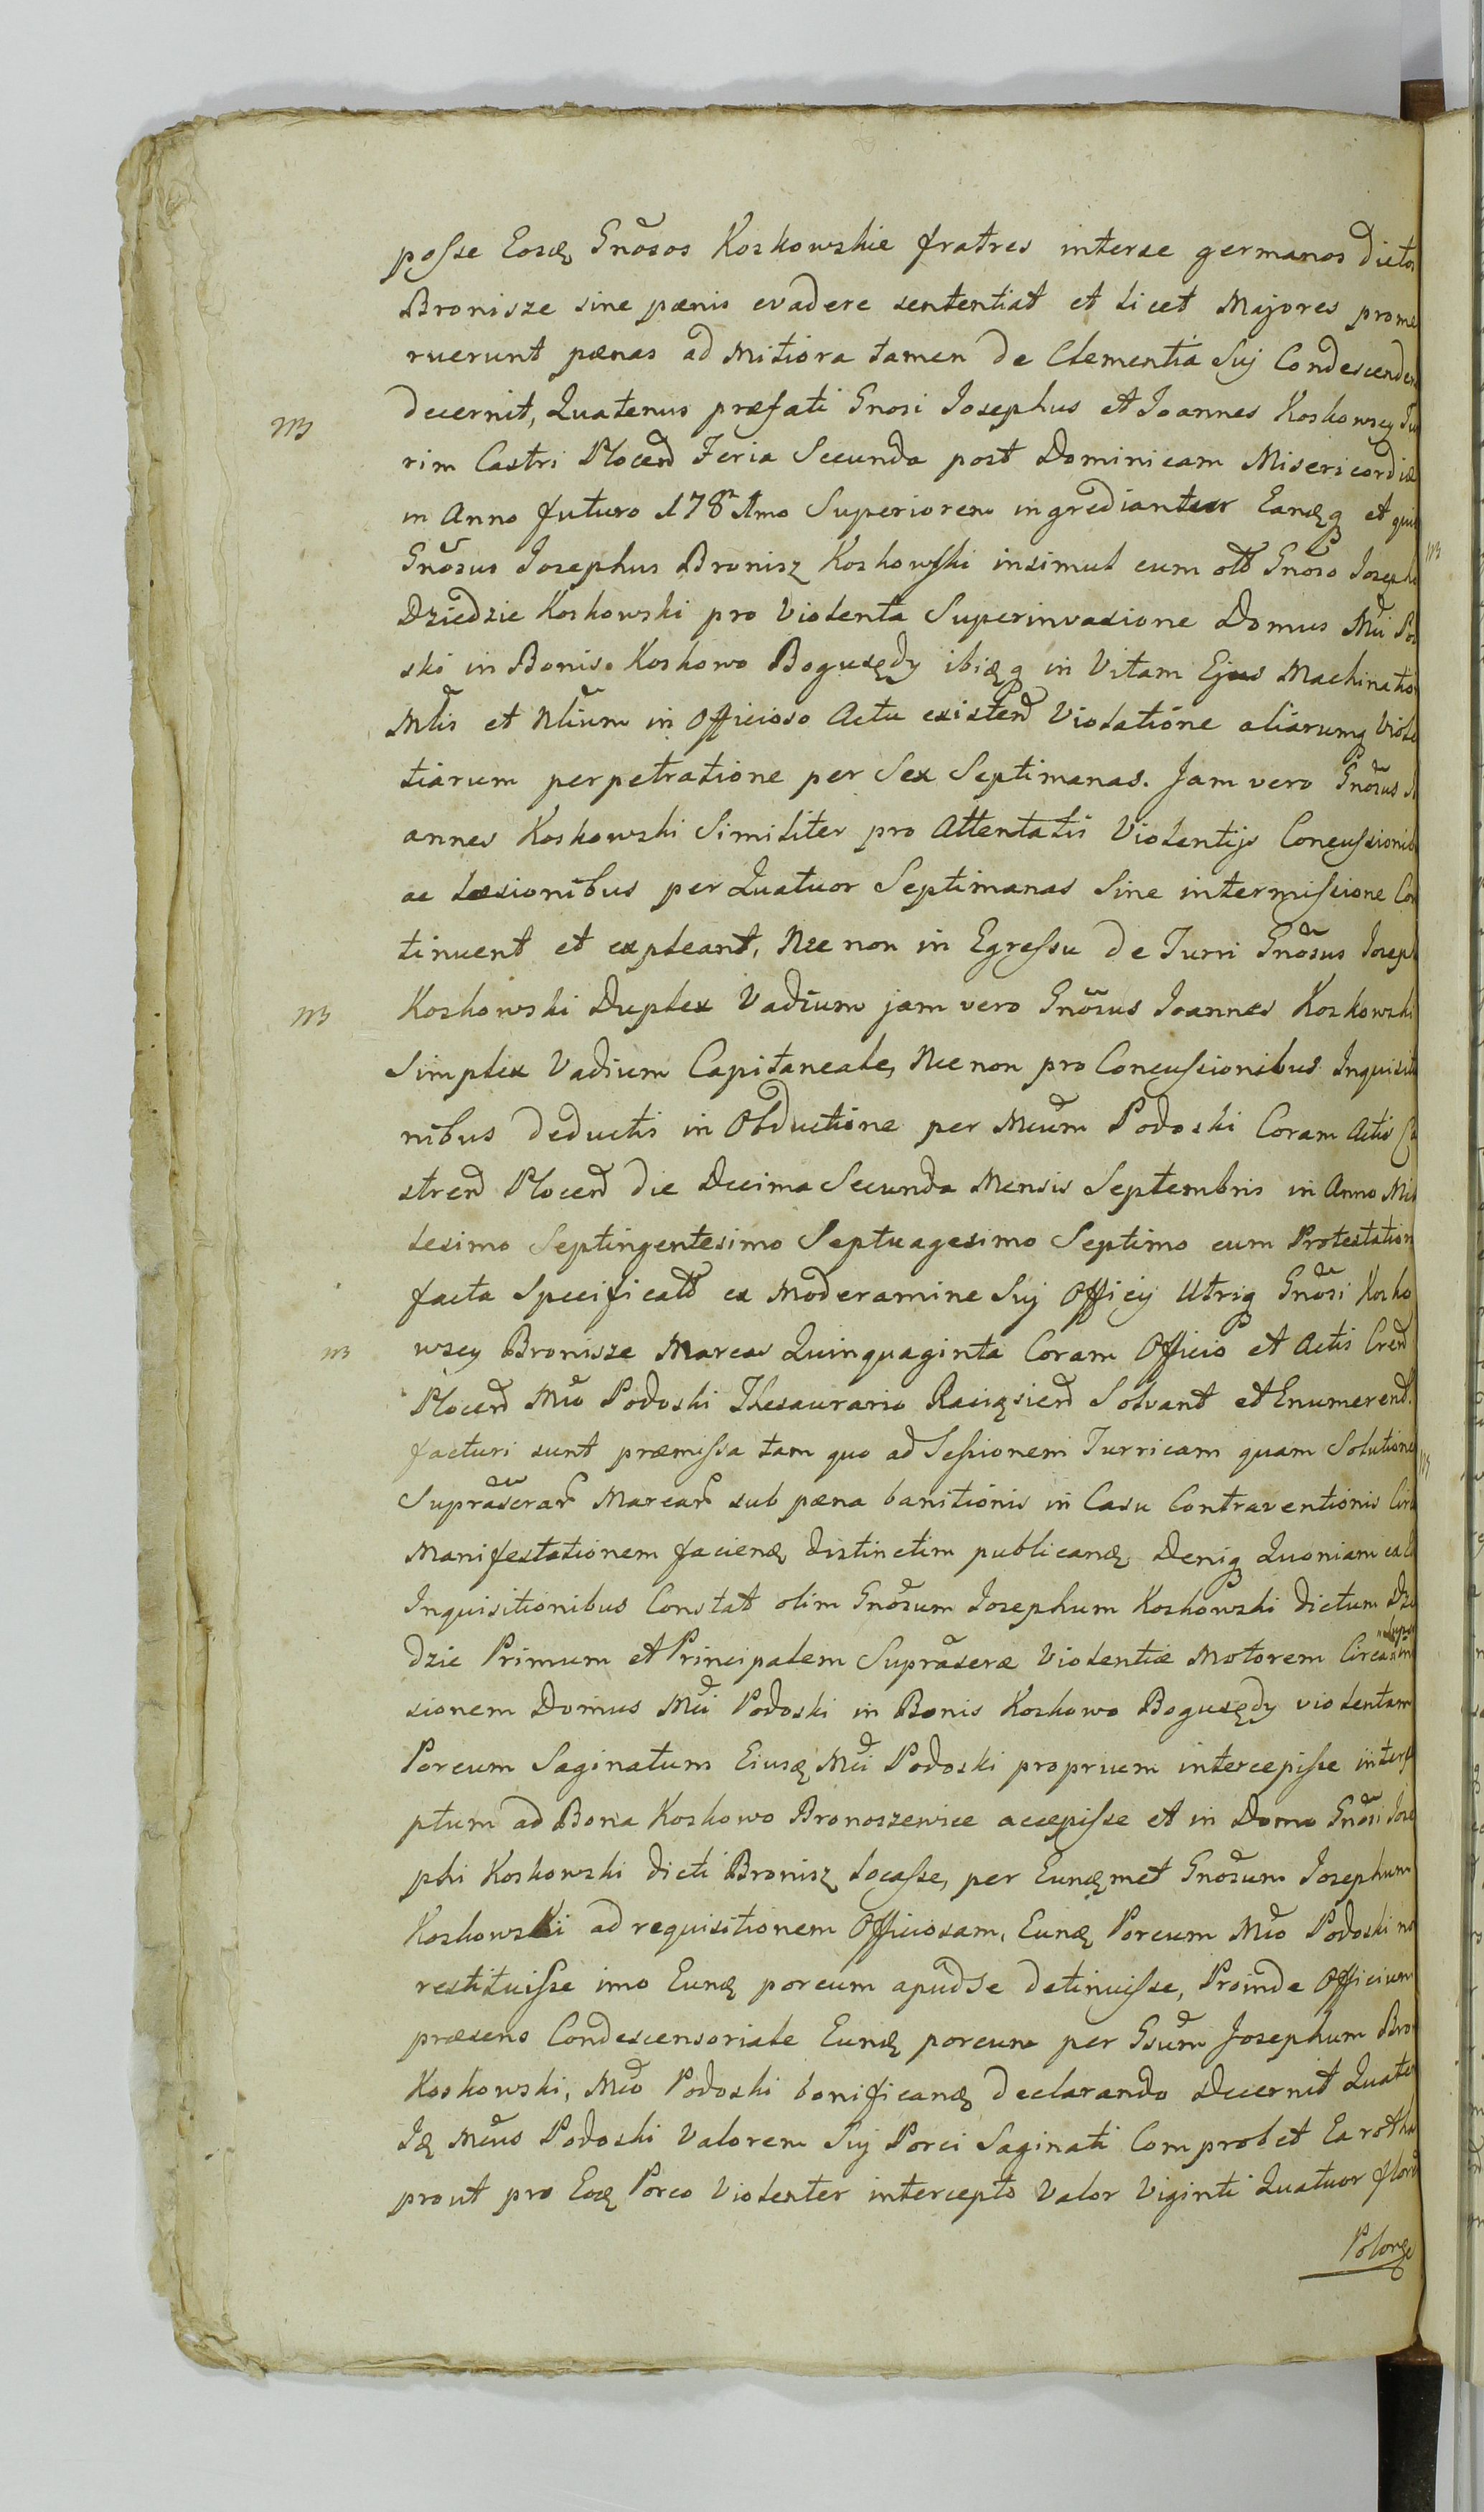 posse Eosdę Gnosos Koskowskie fratres interse germanos dictos
Bronisze sine pænis evadere sententiat et licet Majores prome
ruerunt pænas ad Mitiora tamen de Clementia Suj Condescendere
decernit, Quatenus præfati Gnosi Josephus et Joannes Koskowscy Tu
rim Castri Plocen Feria Secunda post Dominicam Misericordiæ
in Anno futuro 178 Superiorem ingrediantur Eandęq et quid
Gnosus Josephus Bronisz Koskowski insimul cum olt Gnoso Josepho
Dziedzic Koskowski pro Violenta Superinvasione Domus Mci Podo
ski in Bonis Koskowo Bogusędy ibidęq in Vitam Ejus Machinatio
Mlis et Nlium in Officioso Actu existen Violatione aliarumq Viole
tiarum perpetratione per Sex Septimanas. Jam vero Gnosus Jo
annes Koskowski Similiter pro Attentatis Violentijs Concussionib
ac læsionibus per Quatuor Septimanas Sine intermissione Con
tinuent et expleant, Nec non in Egressu de Turri Gnosus Joseph
Koskowski Duplex Vadium jam vero Gnosus Joannes Koskowski
Simplex Vadium Capitaneale, Nec non pro Concussionibus Inquisitio
nibus deductis in Obductione per Mcum Podoski Coram Actis Ca
stren Plocen die Decima Secunda Mensis Septembris in Anno Mil
lesimo Septingentesimo Septuagesimo Septimo cum Protestation
facta Specificat ex Moderamine Suj Officij Utriq Gnosi Kosko
wscy Bronisze Marcas Quinquaginta Coram Officio et Actis Cren
Plocen Mco Podoski Thesaurario Raciąsien Solvant et Enumerent.
facturi sunt præmissa tam quo ad Sessionem Turricam quam Solutione
Suprascrar Marcar sub pæna banitionis in Casu Contraventionis Circa
Manifestationem faciendę distinctim publicandę Deniq Quoniam ex
Inquisitionibus Constat olim Gnosum Josephum Koskowski dictum Dzie
dzic Primum et Principalem Suprascræ Violentiæ Motorem Circa
sionem Domus Mci Podoski in Bonis Koskowo Bogusędy violentam
Porcum Saginatum Eiusdę Mci Podoski proprium intercepisse interce
ptum ad Bona Koskowo Bronoszewice accepisse et in Domo Gnosi Jose
phi Koskowski dicti Bronisz locasse, per Eundęmet Gnosum Josephum
Koskowski ad requisitionem Officiosam, Eundę Porcum Mco Podoski no
restituisse imo Eundę porcum apudse detinuisse, Proinde Officium
præsens Condescensoriale Eundę porcum per Gsum Josephum Bro
Koskowski, Mco Podoski bonificandę declarando Decernit Quate
Idę Mcus Podoski Valorem Suj Porci Saginati Comprobet Ea rotha
prout pro Eodę Porco Violenter intercepto Valor Viginti Quatuor flor
Polonę